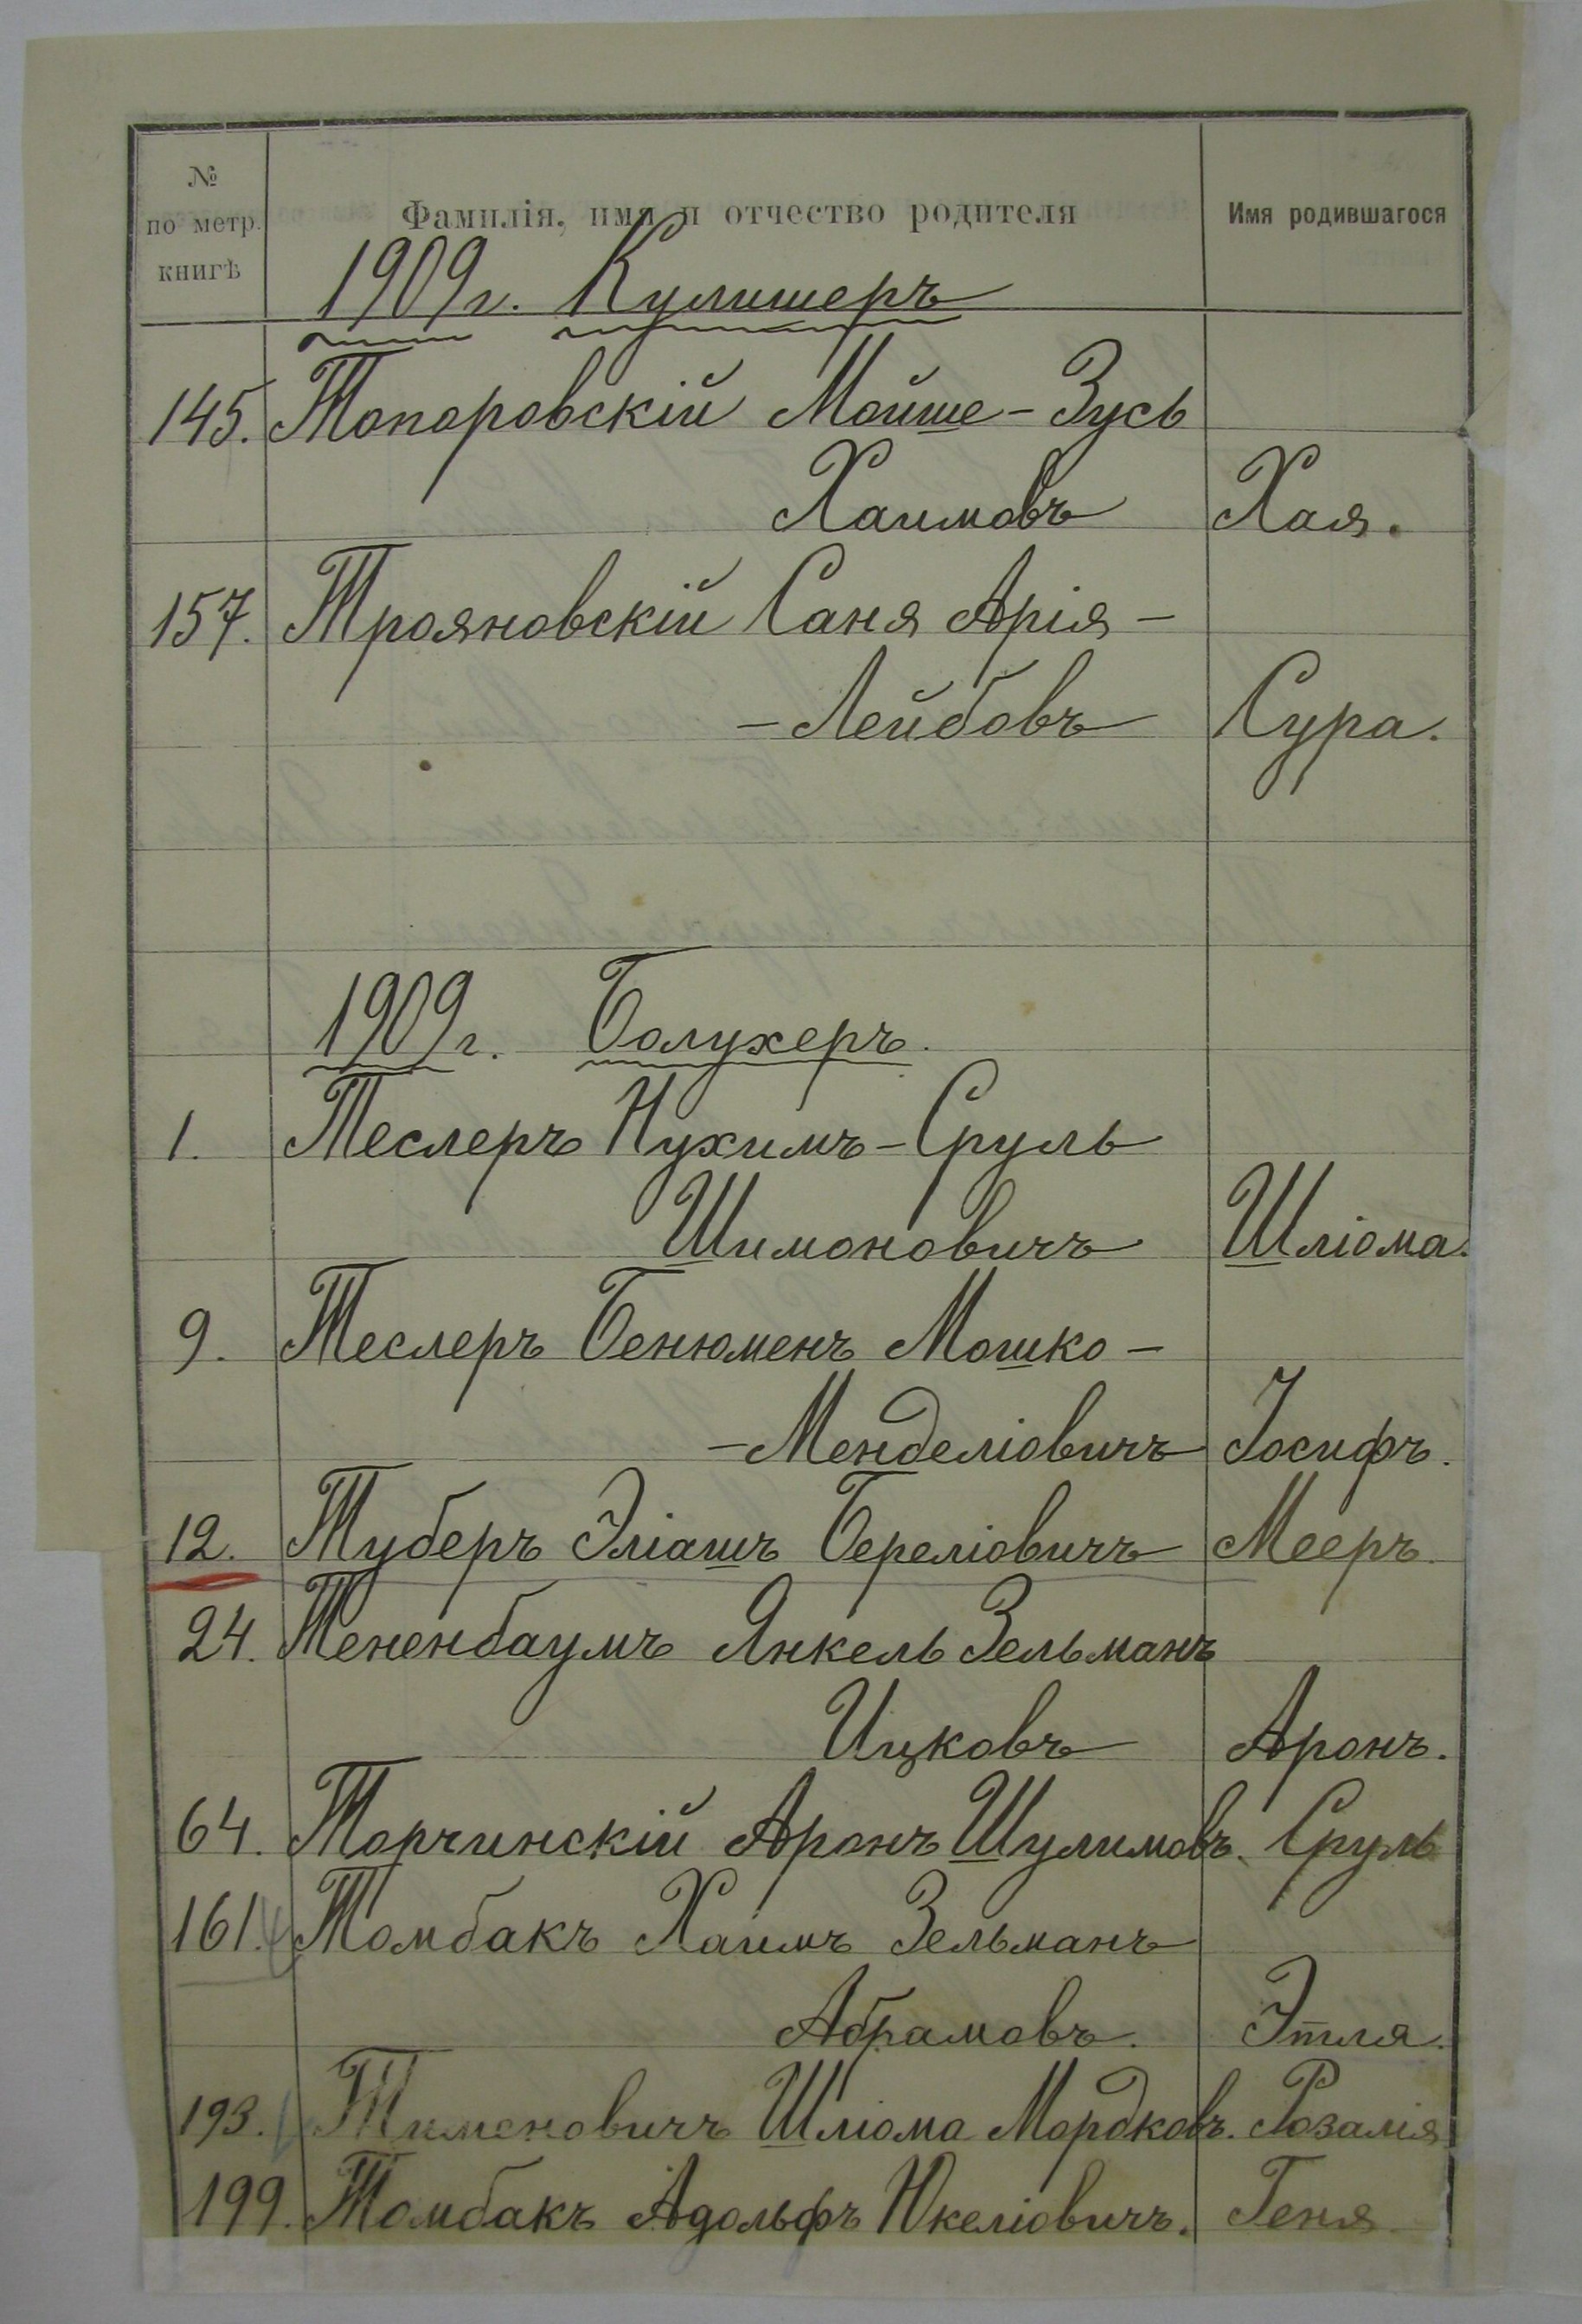 № по метр. книгѣ
Фамилія, имя и отчество родителя
Имя родившагося
1909 г. Кулишеръ
145. Топоровскій Мойше-Зусь
Хаимовъ Хая.
157. Трояновскій Саня Арія-
-Лейбовъ Сура.
1909 г. Болухеръ.
1. Теслеръ Нухимъ-Сруль
Шимоновичъ Шліома.
9. Теслеръ Бенюменъ Мошко-
-Менделіовичъ Іосифъ.
12. Туберъ Эліашъ Береліовичъ Мееръ.
24. Тененбаумъ Янкель Зельманъ
Ицковъ Аронъ.
64. Торчинскій Аронъ Шулимовъ. Сруль
161. Томбакъ Хаимъ Зельманъ
Абрамовъ. Этля.
193. Тименовичъ Шліома Мордковъ. Розалія
199. Томбакъ Адольфъ Юкеліовичъ. Геня